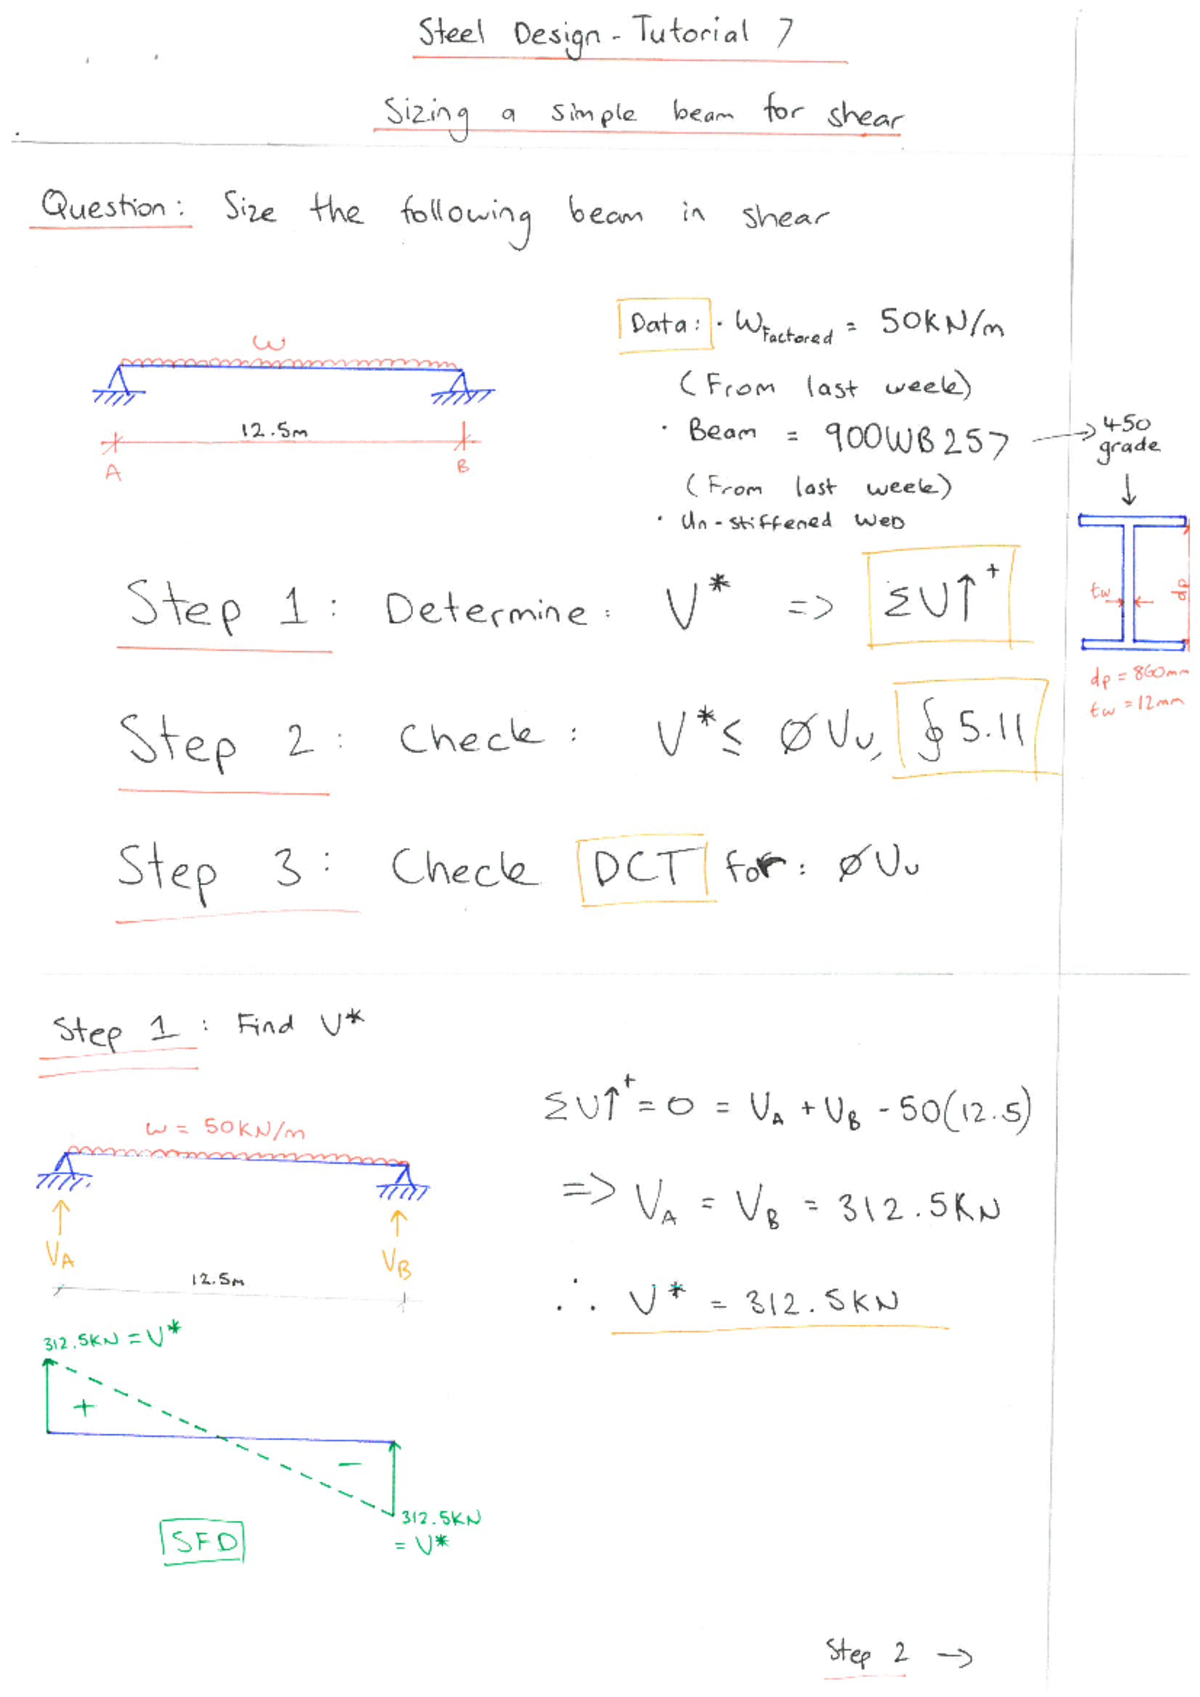 Steel Design - Tutorial 7
Sizing a simple beam for shear
Question: Size the following beam in shear
Data: · WFactored = 50KN/m
(From last week)
· Beam = 900WB257 → 450 grade
(From last week)
· Un-stiffened WEB
ω
12.5m
A B
tw
dp
dp = 860mm
tw = 12mm
Step 1: Determine: V* => ΣV↑+
Step 2: Check: V* ≤ ØVv, § 5.11
Step 3: Check DCT for: ØVv
Step 1: Find V*
ω = 50KN/m
VA VB
12.5m
ΣV↑+ = 0 = VA + VB - 50(12.5)
=> VA = VB = 312.5KN
∴ V* = 312.5KN
312.5KN = V*
+
-
312.5KN
= V*
SFD
Step 2 →